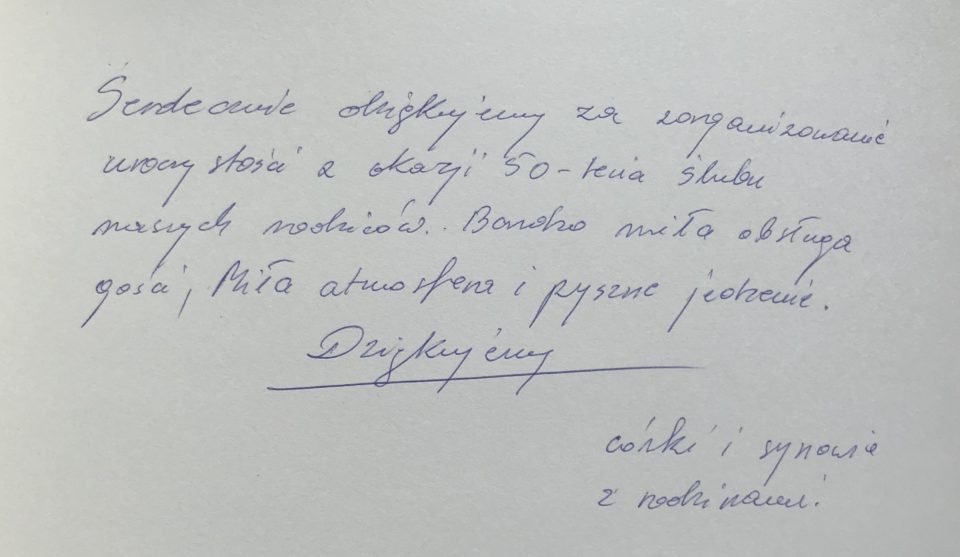 Serdecznie dziękujemy za zorganizowanie
uroczystości z okazji 50-lecia ślubu
naszych rodziców. Bardzo miła obsługa
gości, Miła atmosfera i pyszne jedzenie.
Dziękujemy
córki i synowie
z rodzinami.